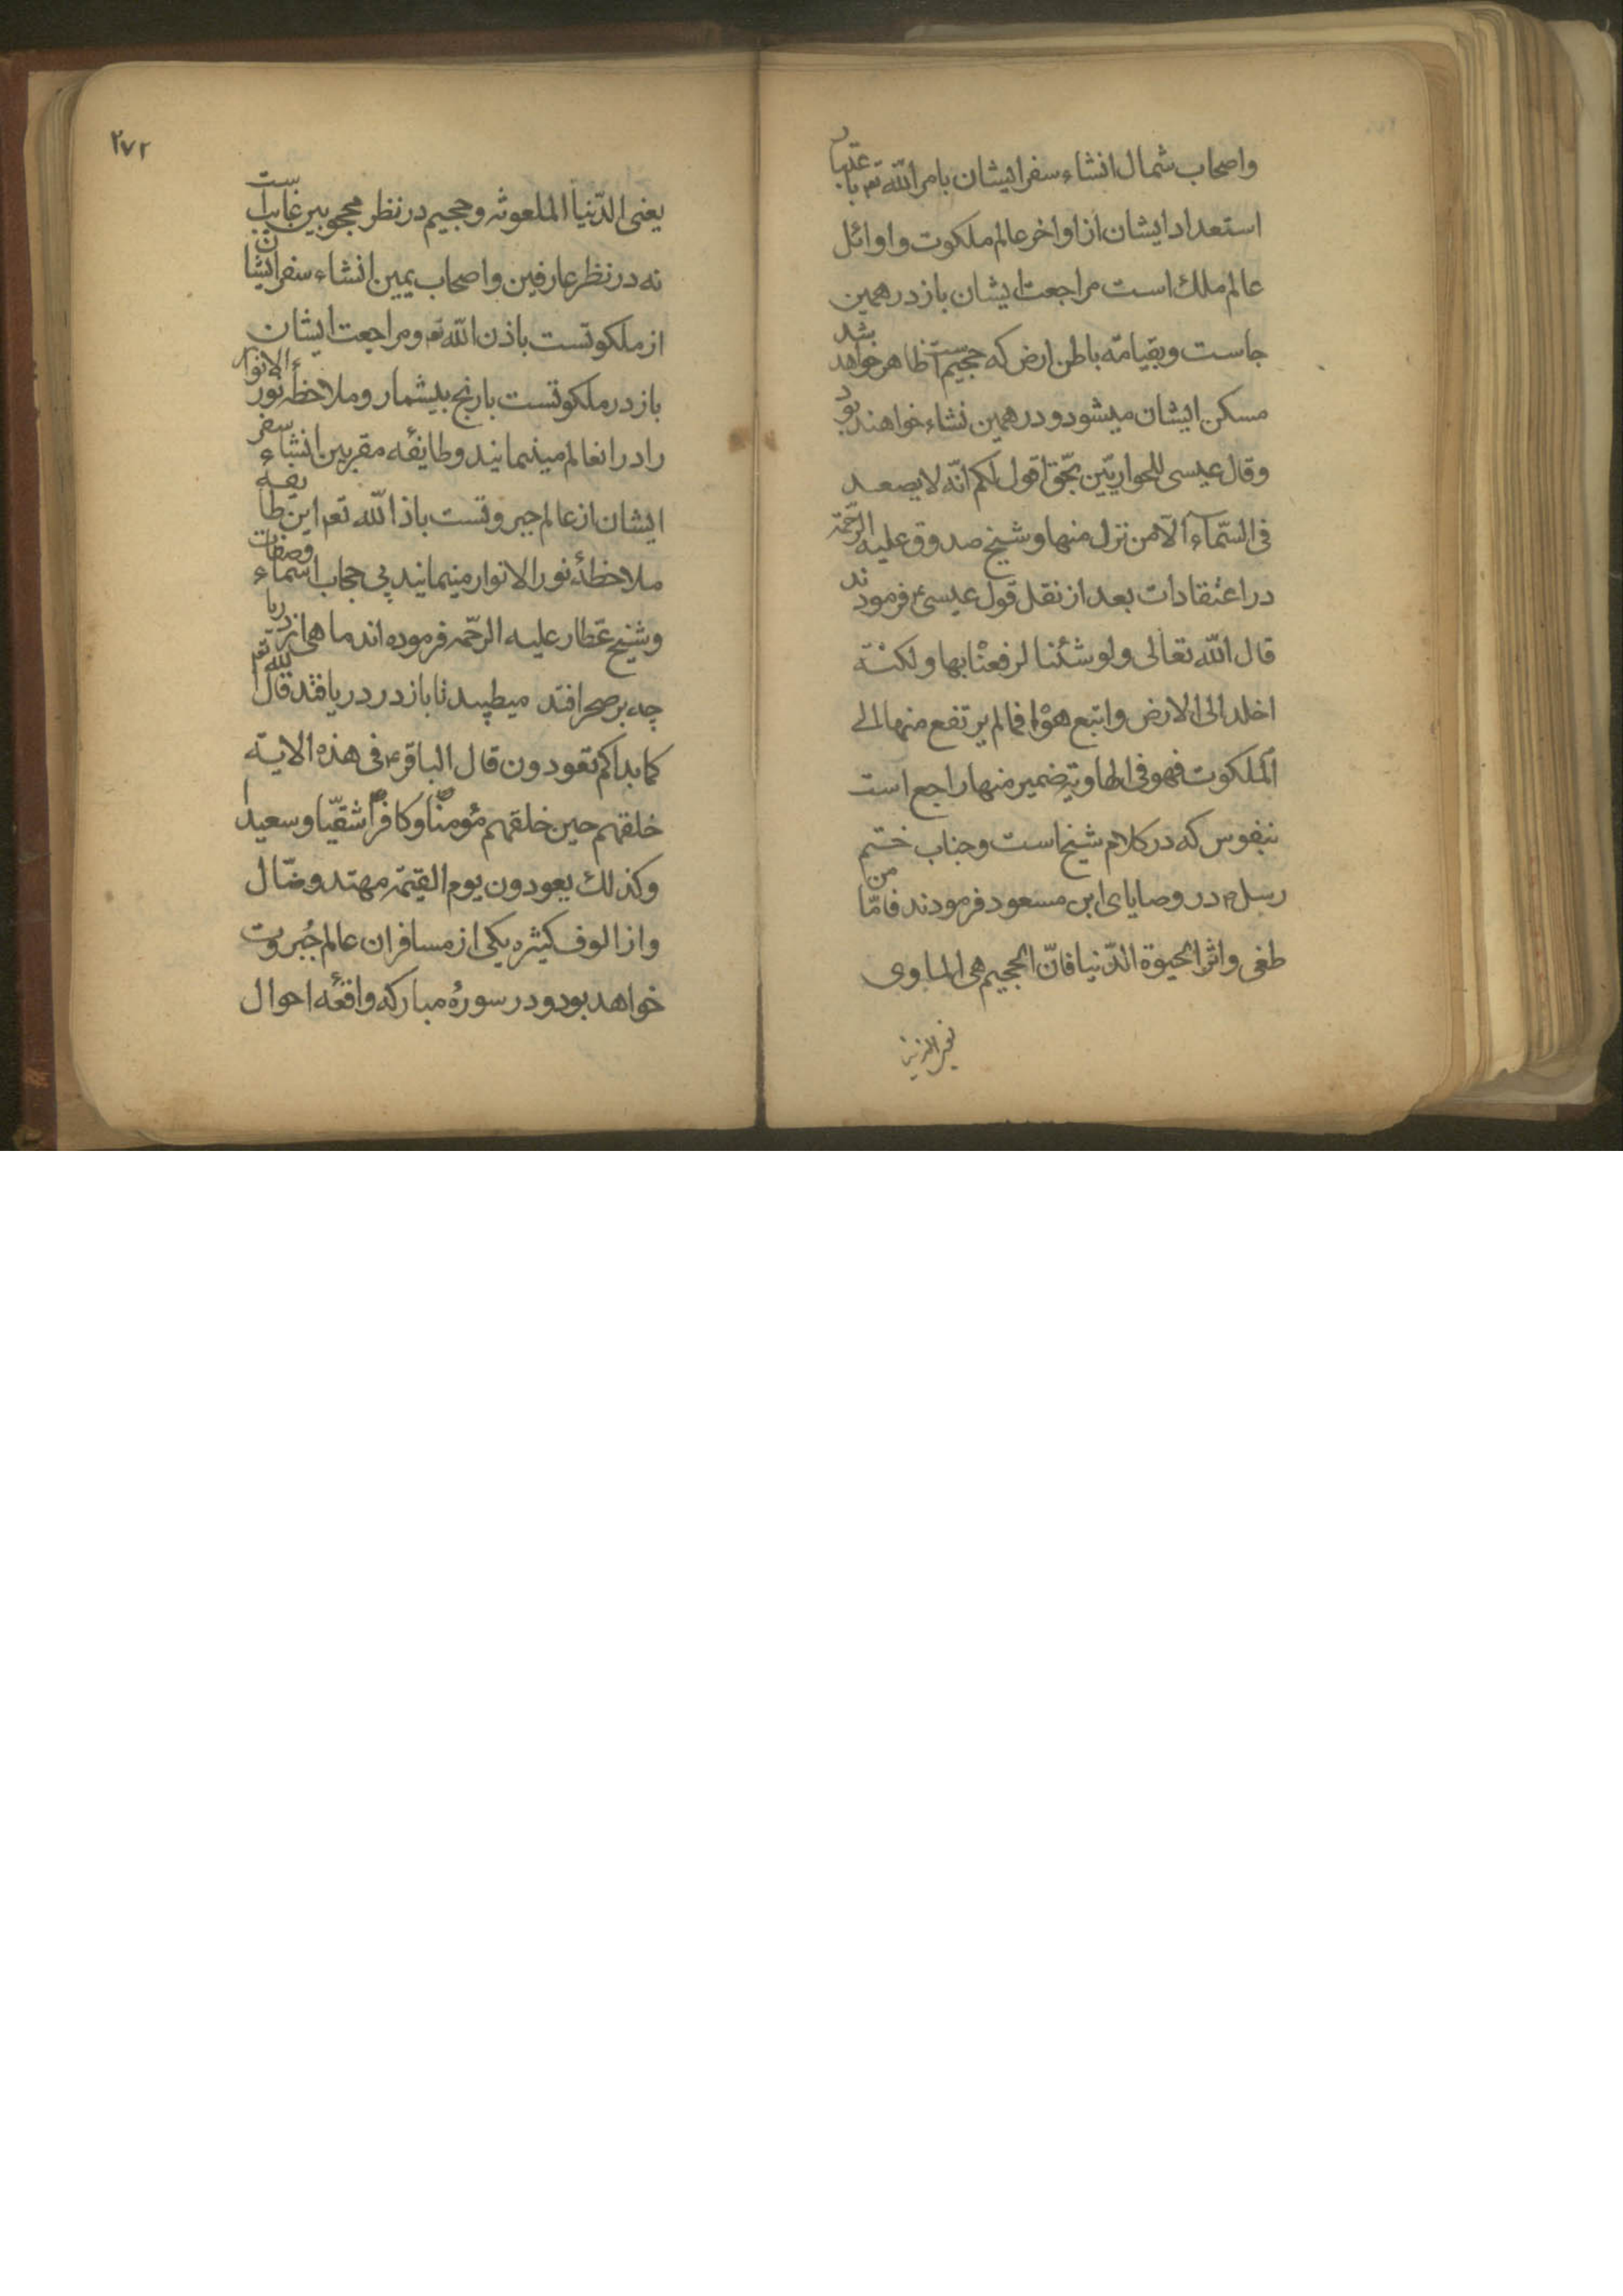 واصحاب شمال انشاء سفر ایشان بامر الله تعم باعتبار
استعداد ایشان از اواخر عالم ملکوت و اوائل
عالم ملك است مراجعت ایشان باز در همین
جاست و بقیامة باطن ارض که جحیم است ظاهر خواهد شد
مسکن ایشان میشود و در همین نشاء خواهند بود
وقال عیسی للحواریّین بحّق اقول لکم انّه لا یصعد
فی السّماء الّا من نزل منها و شیخ صدوق علیه الرّحمة
در اعتقادات بعد از نقل قول عیسیٰ فرمودند
قال الله تعالی ولو شئنا لرفعناه بها ولکنّه
اخلد الی الارض واتبع هوٰه فما لم یرتفع منها الی
الملکوت فهو فی الهاویة ضمیر منها راجع است
بنفوس که در کلام شیخ است و جناب ختم
رسل ص در وصایای ابن مسعود فرمودند فامّا من
طغی واثر الحیوة الدّنیا فانّ الجحیم هی الماوی
۲۷۲
یعنی الدّنیا الملعونه و جحیم در نظر محجوبین غایب است
نه در نظر عارفین و اصحاب یمین انشاء سفر ایشان
از ملکوتست باذن الله تعم و مراجعت ایشان
باز در ملکوتست بارنج بیشمار و ملاحظهٔ نور الانوار
را در انعالم مینمایند و طایفه مقربین انشاء سفر
ایشان از عالم جبروتست باذ الله تعم این طایفه
ملاحظهٔ نور الانوار مینمایند بی حجاب اسماء وصفات
و شیخ عطّار علیه الرحّمه فرموده اند ماهی از دریا
چه بر صحرا افتد میطپد تا باز در دریا فتد قال الله تعم
کما بداکم تعودون قال الباقر ع فی هذه الایة
خلقهم حین خلقهم مؤمنًا و کافرًا شقیّا و سعیدا
وکذلك یعودون یوم القیٰمة مهتد و ضّال
و از الوف کثیره یکی از مسافران عالم جُبروت
خواهد بود و در سورۀ مبارکه واقعه احوال